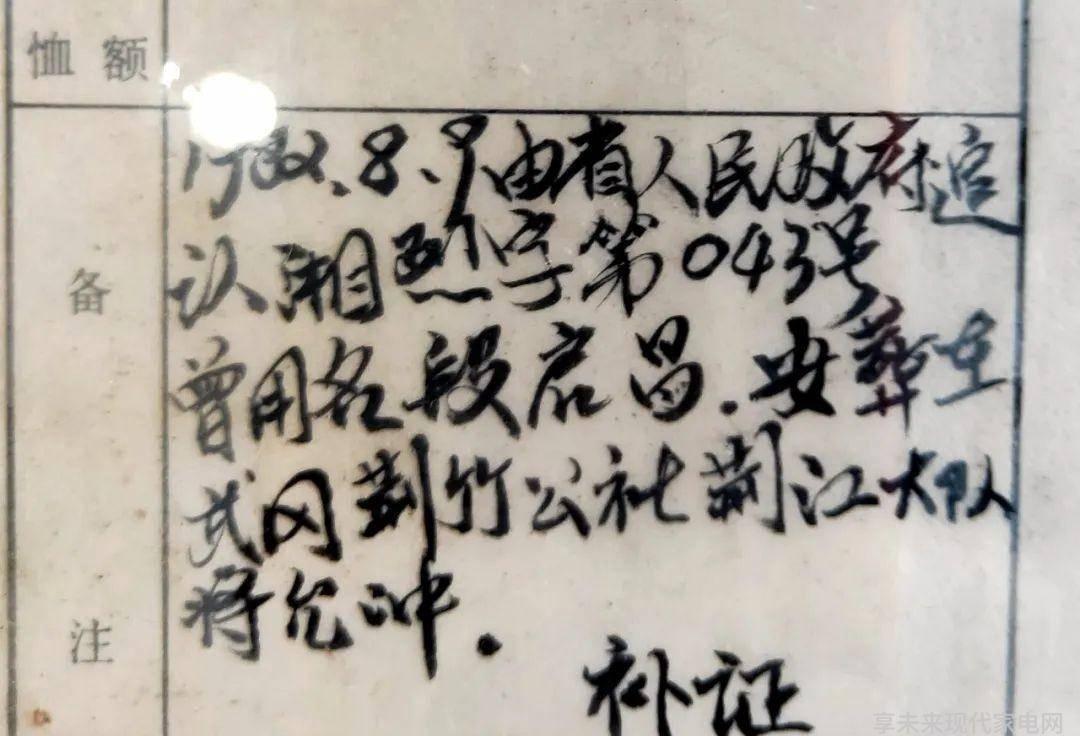 恤额
备注
8.9由省人民政府追
认湘烈字第043号
曾用名段启昌.安葬在
武冈荆竹公社荆江大队
将 冲.
补证
享未来现代家电网